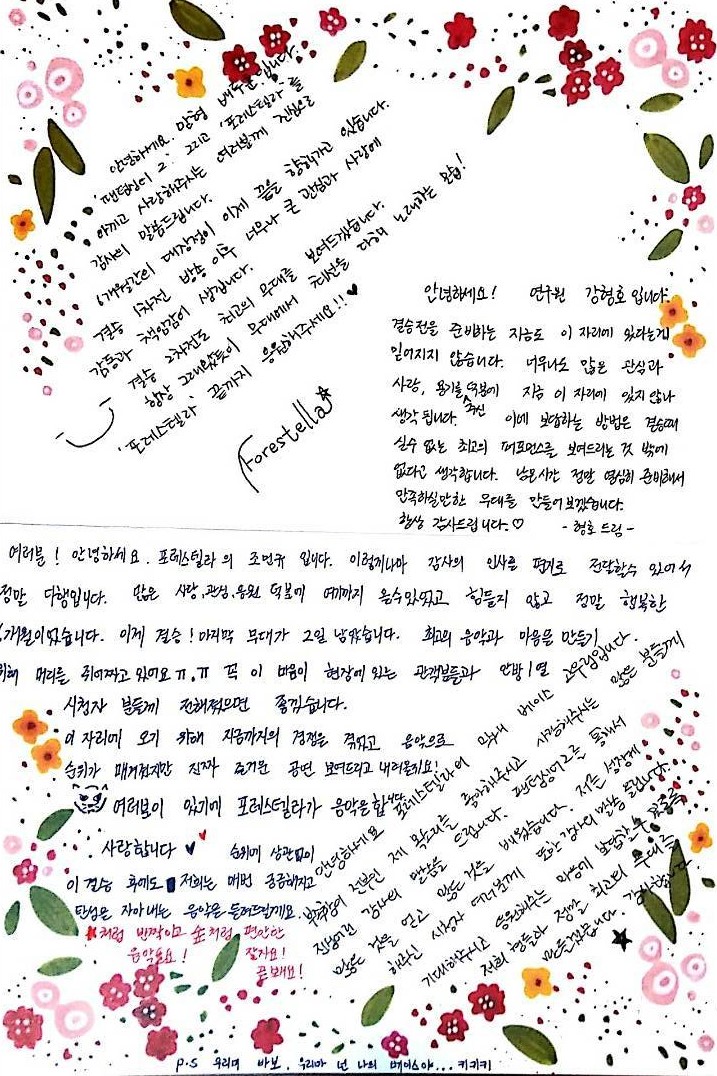 안녕하세요. 맏형 배두훈입니다
'팬텀싱어 2' 그리고 '포레스텔라'를
아끼고 사랑해주시는 여러분께 진심으로
감사의 말씀드립니다.
6개월간의 대장정이 이제 끝을 향해가고 있습니다.
결승 1차전 방송 이후 너무나 큰 관심과 사랑에
감동과 책임감이 생깁니다.
결승 2차전도 최고의 무대를 보여드리겠습니다.
항상 그래왔듯이 무대에서 최선을 다해 노래하는 모습!
'포레스텔라' 끝까지 응원해주세요!!♥
Forestella☆
안녕하세요! 연구원 강형호입니다.
결승전을 준비하는 지금도 이 자리에 있다는게
믿어지지 않습니다. 너무나도 많은 관심과
사랑, 용기를 주신 덕분에 지금 이 자리에 있지 않나
생각됩니다. 이에 보답하는 방법은 결승때
실수 없는 최고의 퍼포먼스를 보여드리는 것 밖에
없다고 생각합니다. 남은시간 정말 열심히 준비해서
만족하실만한 무대를 만들어보겠습니다.
항상 감사드립니다.♡ - 형호 드림 -
여러분! 안녕하세요. 포레스텔라의 조민규 입니다. 이렇게나마 감사의 인사를 편지로 전달할수 있어서
정말 다행입니다. 많은 사랑,관심,응원 덕분에 여기까지 올수있었고 힘들지 않고 정말 행복한
6개월이었습니다. 이제 결승! 마지막 무대가 2일 남았습니다. 최고의 음악과 마음을 만들기
위해 머리를 쥐어짜고 있어요ㅠ.ㅠ 꼭 이 마음이 현장에 있는 관객분들과 안방1열
시청자 분들께 전해졌으면 좋겠습니다.
이 자리에 오기 위해 지금까지의 경쟁을 겪었고 음악으로
순위가 매겨졌지만 진짜 즐거운 공연 보여드리고 내려올게요!
여러분이 있기에 포레스텔라가 음악을 합니다.
사랑합니다 ♥ ♥ 순위에 상관없이
이 결승 후에도 저희는 매번 궁금해지고
탄성을 자아내는 음악을 들려드릴게요.
★처럼 반짝이고 숲처럼 편안한
음악으로! 잘자요!
굿밤요!
안녕하세요 포레스텔라의 막내 베이스 고우림입니다.
부족함이 전부인 제 목소리를 좋아해주시고 사랑해주시는 많은 분들께
진심어린 감사의 말씀을 드립니다. 팬텀싱어2를 통해서
많은 것을 얻고 많은 것을 배웠습니다. 저를 성장케
해주신 시청자 여러분께 또한 감사의 말씀 드립니다.
기대해주시고 응원해주는 마음에 보답할수 있도록
저희 형들과 정말 최고의 무대를
만들겠습니다. 감사합니다 ★
P.S 우리며 바보. 우리마 넌 나의 베이스야... 키키키